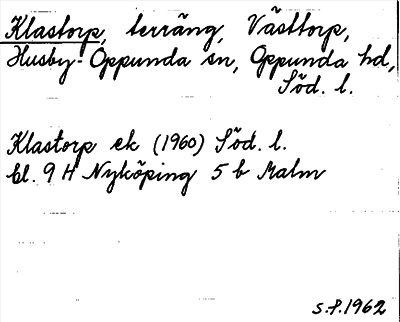 Klastorp, terräng, Västtorp,
Husby-Oppunda sn, Oppunda hd,
Söd. l.
Klastorp ek (1960) Söd. l.
bl. 9 H Nyköping 5 b Malm
s.f. 1962